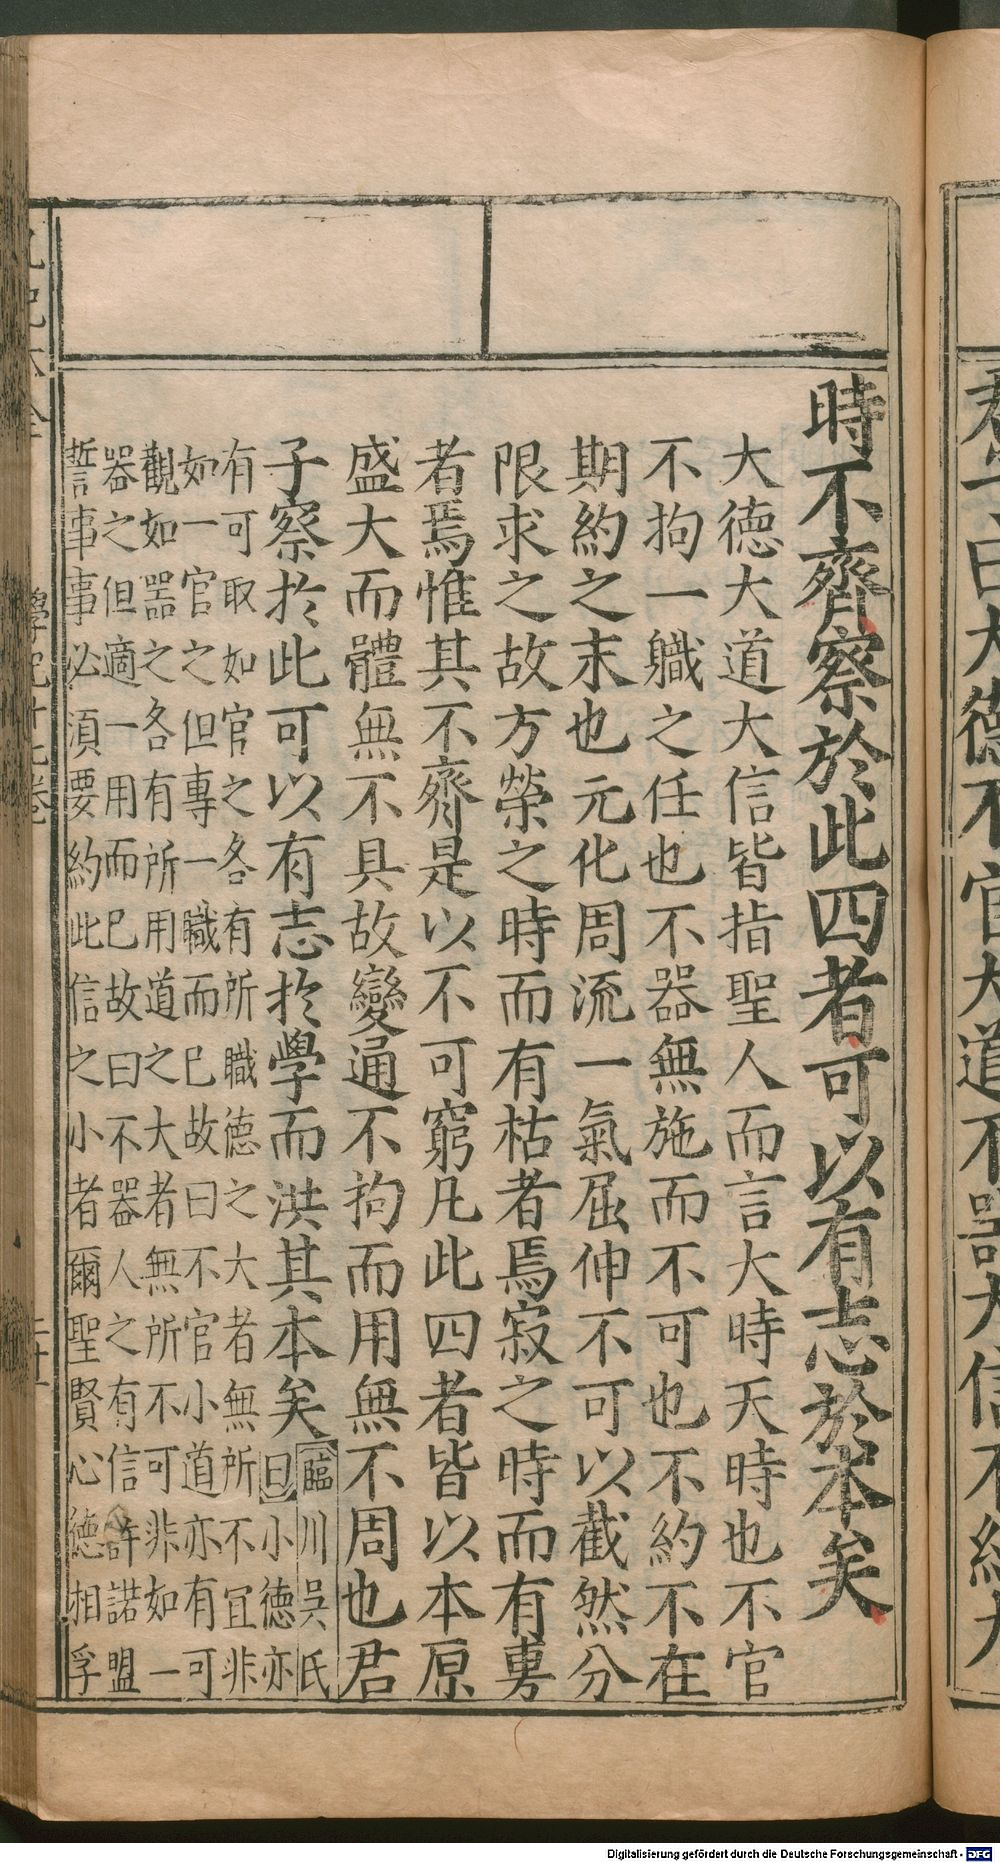 時不齊察於此四者可以有志於本矣
大德大道大信皆指聖人而言大時天時也不官
不拘一職之任也不器無施而不可也不約不在
期約之末也元化周流一氣屈伸不可以截然分
限求之故方榮之時而有枯者焉寂之時而有旉
者焉惟其不齊是以不可窮凡此四者皆以本原
盛大而體無不具故變通不拘而用無不周也君
子察於此可以有志於學而洪其本矣
臨川吳氏
曰小德亦
有可取如官之各有所職德之大者無所不宜非
如一官之但專一職而已故曰不官小道亦有可
觀如器之各有所用道之大者無所不可非如一
器之但適一用而已故曰不器人之有信許諾盟
誓事事必須要約此信之小者爾聖賢心德相孚
學記十九卷
君子曰大德不官大道不器大信不約大
Digitalisierung gefördert durch die Deutsche Forschungsgemeinschaft - DFG